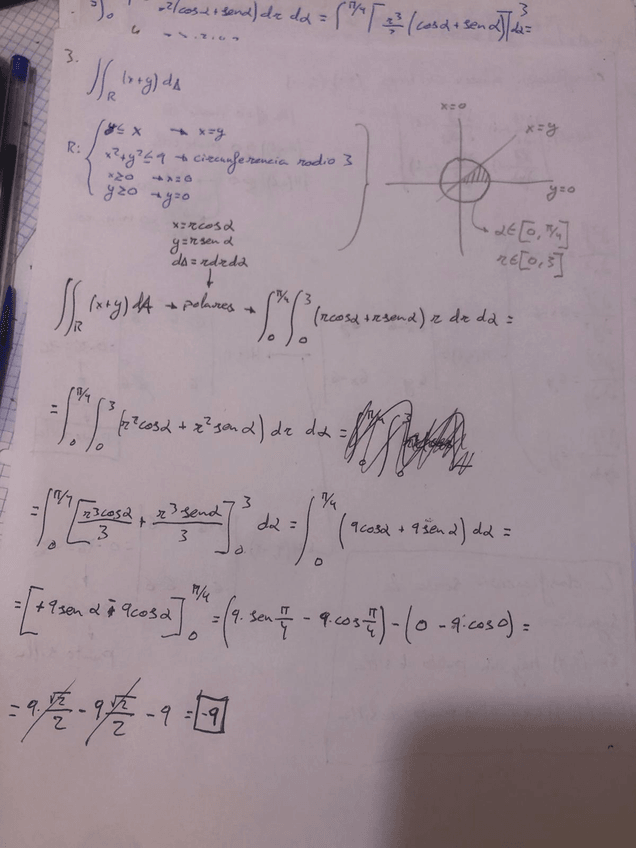 r²(cosα+senα)dr dα = ∫₀^π/4 [r³/3 (cosα+senα)]³ dα=
3.
∬_R (x+y)dA
R: { y≤x → x=y
x²+y²≤9 → circunferencia radio 3
x≥0 → x=0
y≥0 → y=0
x=0
x=y
y=0
α∈[0, π/4]
r∈[0,3]
x=rcosα
y=rsenα
dA=rdrdα
∬_R (x+y)dA → polares → ∫₀^π/4 ∫₀³ (rcosα+rsenα) r dr dα =
= ∫₀^π/4 ∫₀³ (r²cosα + r²senα) dr dα =
= ∫₀^π/4 [r³cosα/3 + r³senα/3]₀³ dα = ∫₀^π/4 (9cosα + 9senα) dα =
= [+9senα - 9cosα]₀^π/4 = (9·sen π/4 - 9·cos π/4) - (0 - 9·cos0) =
= 9·√2/2 - 9√2/2 - 9 = -9